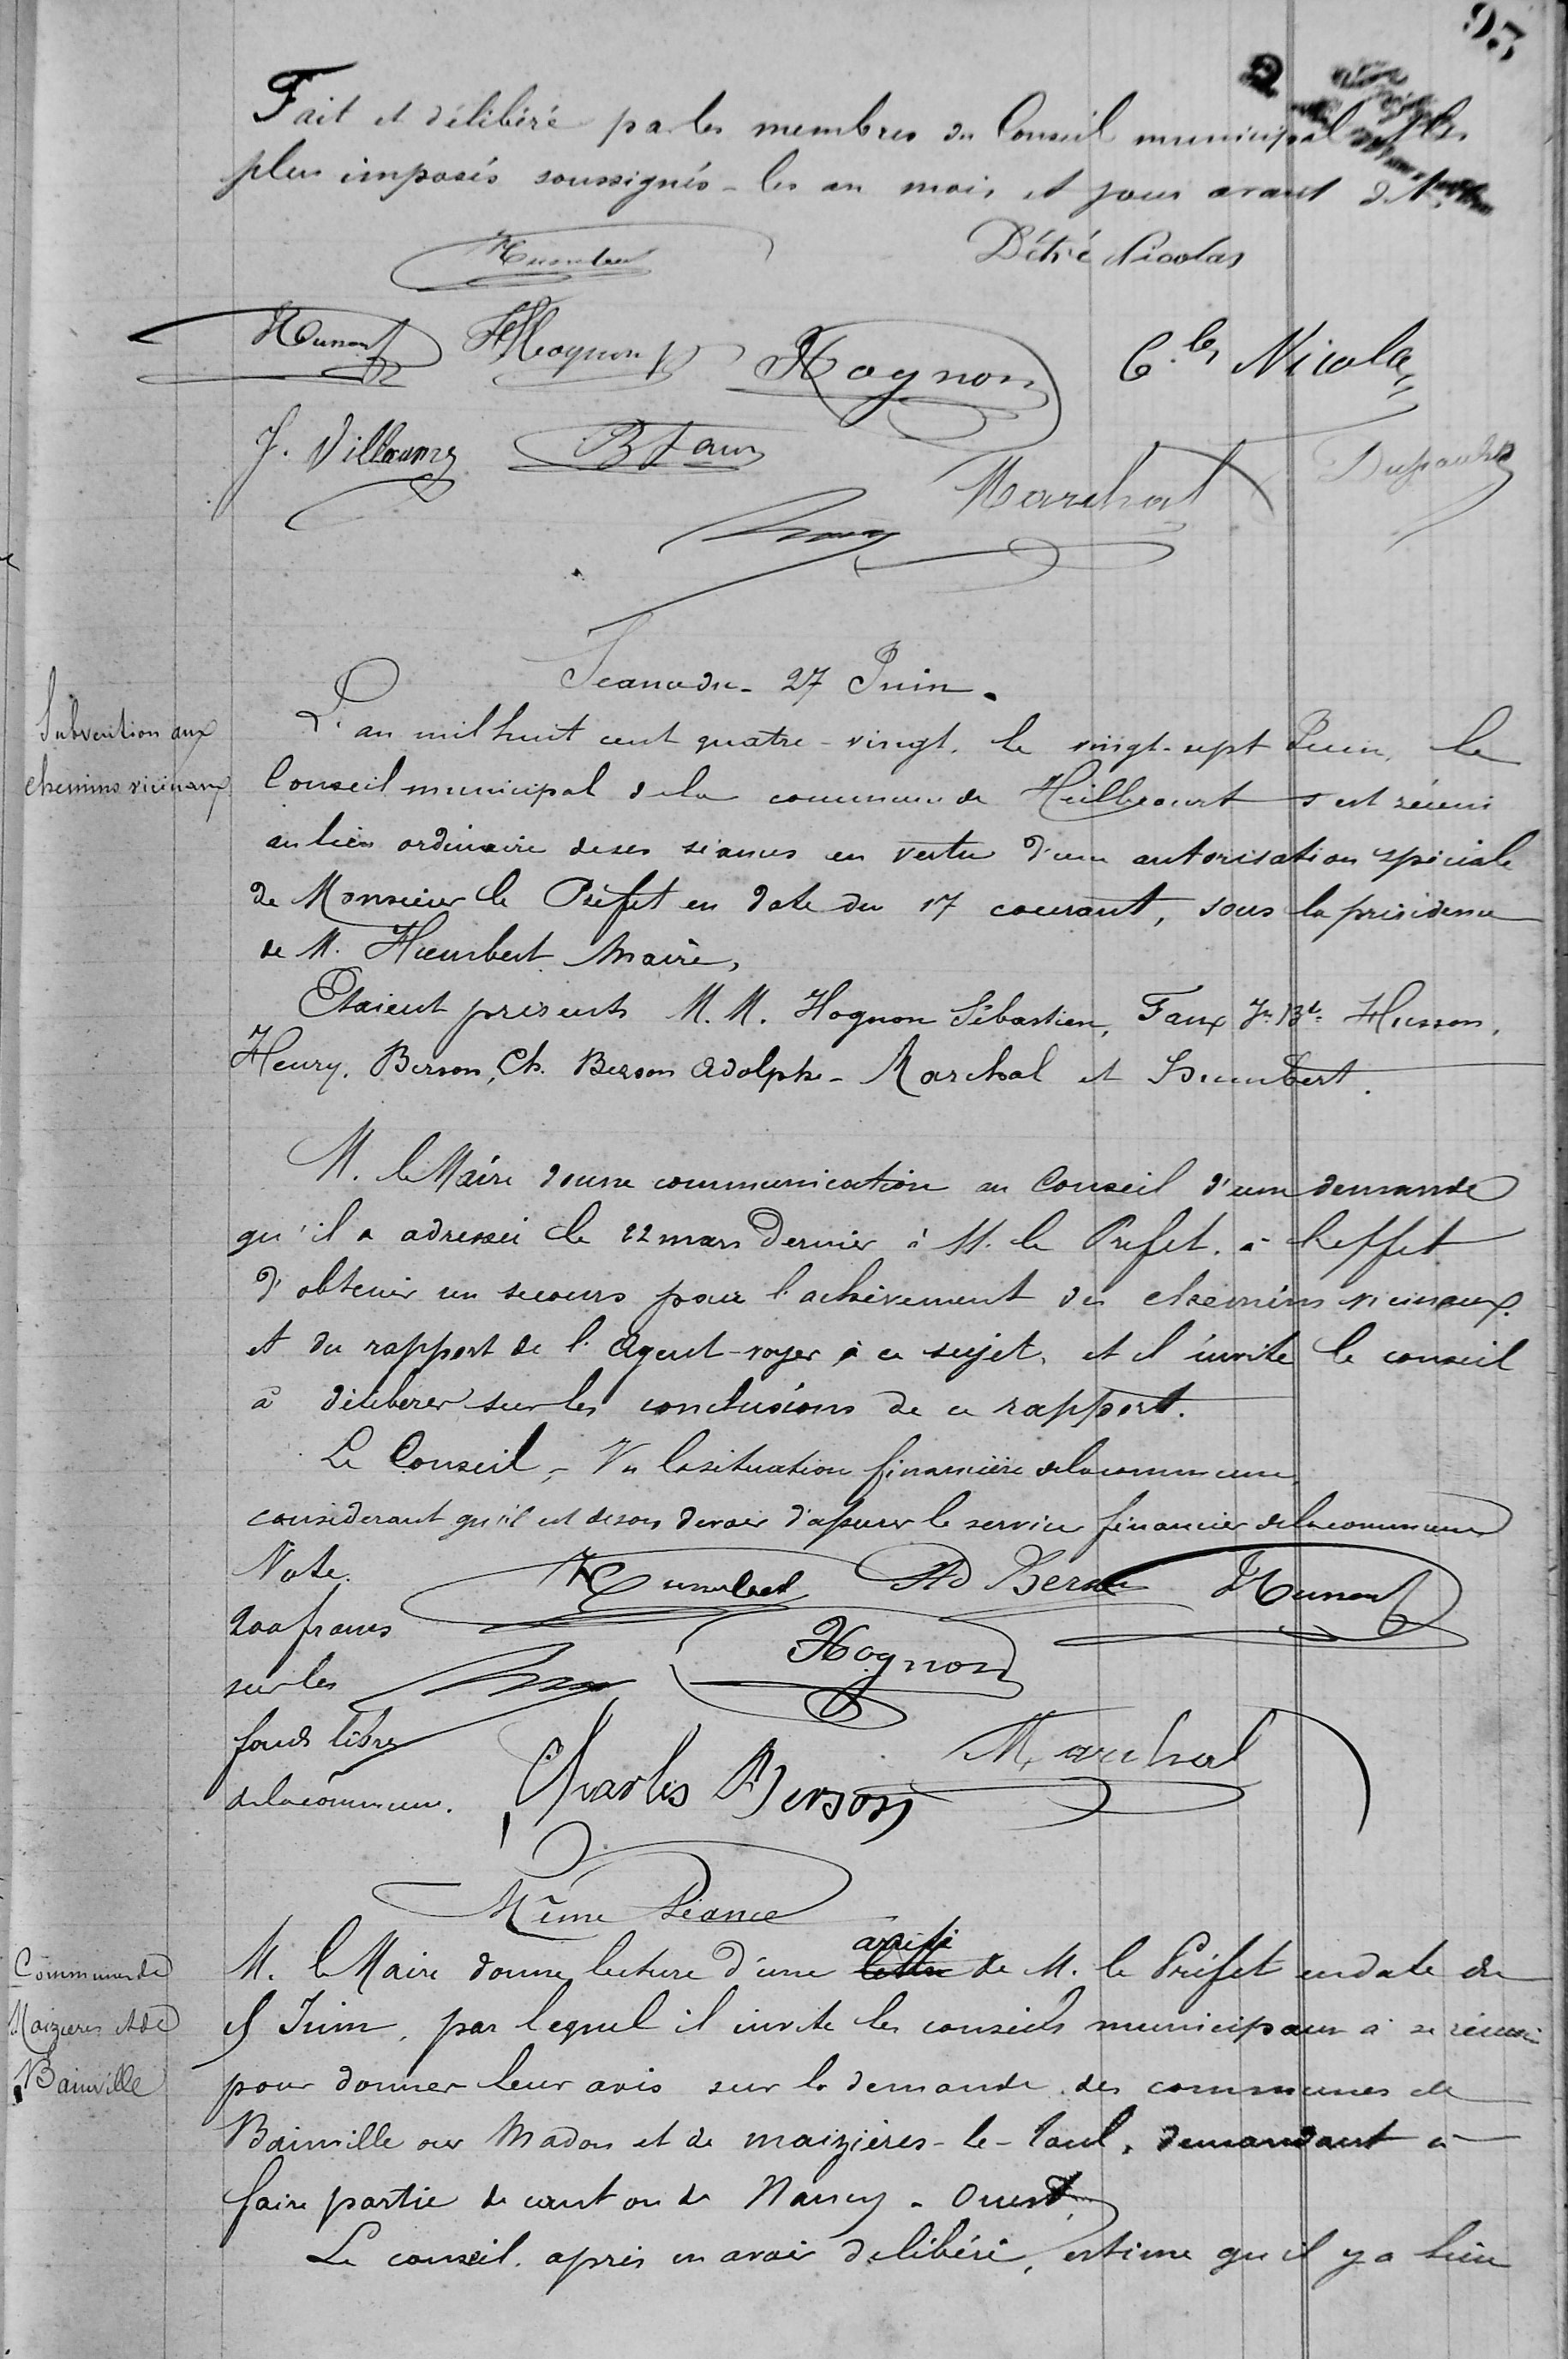 93
2
Fait et délibéré par les membres du Conseil municipal et les
plus imposés soussignés - les an mois et jour avant dit.
Humbert
Détré Nicolas
Hognon
Hognon
C.les Nicolas
J. Villaume
Bt Faux
Marchal
Seance du - 27 Juin.
Subvention aux
chemins vicinaux
L'an mil huit cent quatre-vingt, le vingt-sept Juin, le
Conseil municipal de la commune de Heillecourt s'est réuni
au lieu ordinaire de ses séances en vertu d'une autorisation spéciale
de Monsieur le Préfet en date du 17 courant, sous la présidence
de M. Humbert Maire,
Etaient présents M.M. Hognon Sébastien, Faux Jn Bte Husson,
Henry, Berson, Ch. Berson Adolphe - Marchal et Humbert.
M. le Maire donne communication au Conseil d'une demande
qu'il a adressée le 22 mars dernier à M. le Préfet, à l'effet
d'obtenir un secours pour l'achèvement des chemins vicinaux.
et du rapport de l'Agent-voyer à ce sujet, et il invite le conseil
à déliberer sur les conclusions de ce rapport.
Le Conseil, - Vu la situation financière de la commune,
considerant qu'il est de son devoir d'apurer le service financier de la commune
Vote
200 francs
sur les
fonds libres
de la commune.
Humbert Ad Berson
Hognon
Marchal
Charles Berson
Même Séance
Commune de
Maizieres et de
Bainville
M. le Maire donne lecture d'une lettre arrêté de M. le Préfet en date du
5 Juin, par lequel il invite les conseils municipaux à se réunir
pour donner leur avis sur la demande des communes de
Bainville sur Madon et de Maizières-le-Toul, demandant à
faire partie de canton de Nancy - Ouest,
Le conseil, après en avoir délibéré, estime qu'il y a lieu